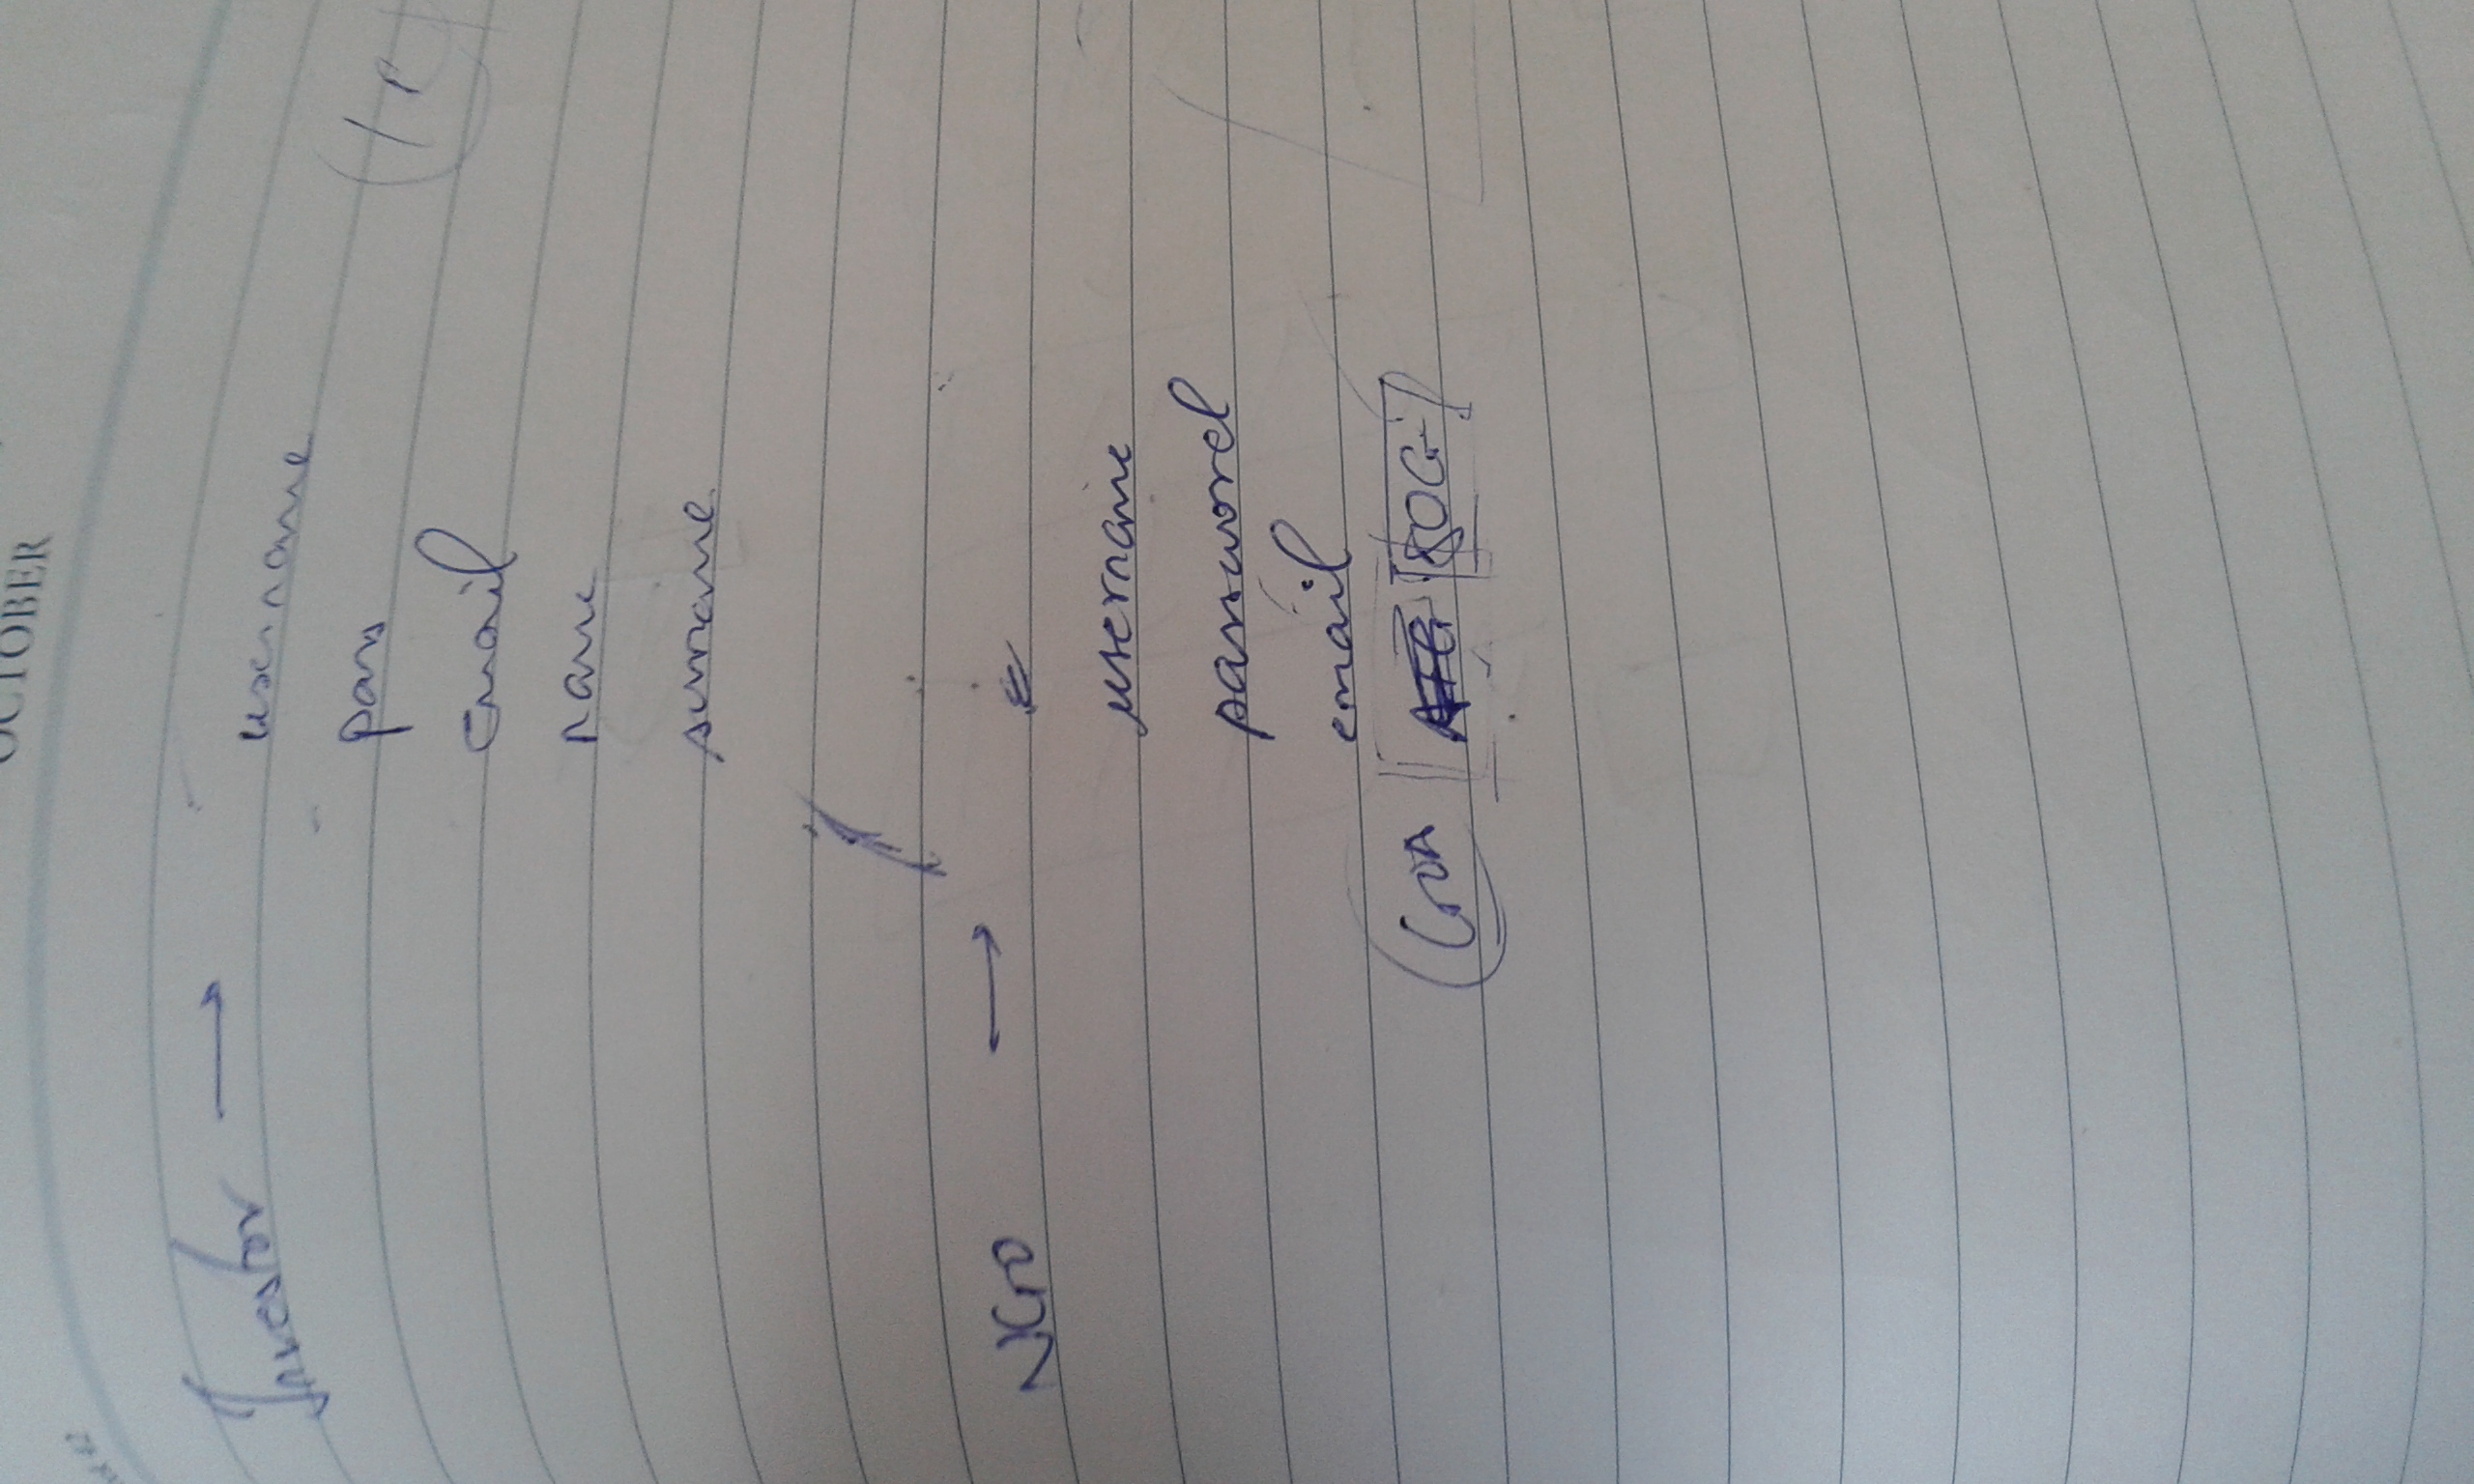 OCTOBER
Investor → username
pass
email
name
surname
NGO →
username
password
email